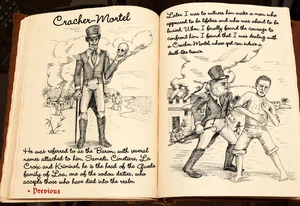 Cracher-Mortel
He was referred to as the Baron, with several
names attached to him, Samedi, Cimetiere, La
Croix and Kriminel, he is the head of the Guede
family of Loa, one of the vodou deities, who
accepts those who have died into the realm.
Previous
Later I was to witness him wake a man who
appeared to be lifeless and who was about to be
buried. When I finally found the courage to
confront him I found that I was dealing with
a Cracher-Mortel, whose spit can induce a
death-like trance.